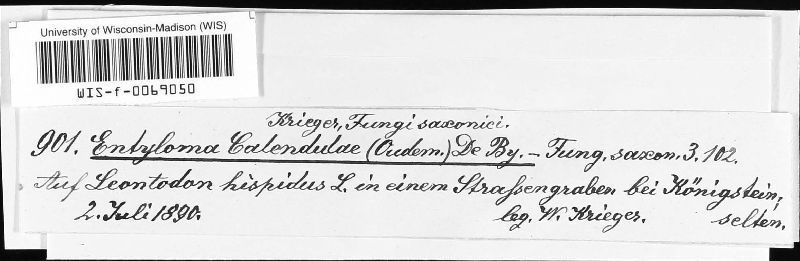 University of Wisconsin-Madison (WIS)
WIS-f-0069050
Krieger, Fungi saxonici.
901. Entyloma Calendulae (Oudem.) De By. – Fung. saxon. 3. 102.
Auf Leontodon hispidus L. in einem Strassengraben bei Königstein;
2. Juli 1890. leg. W. Krieger. selten.